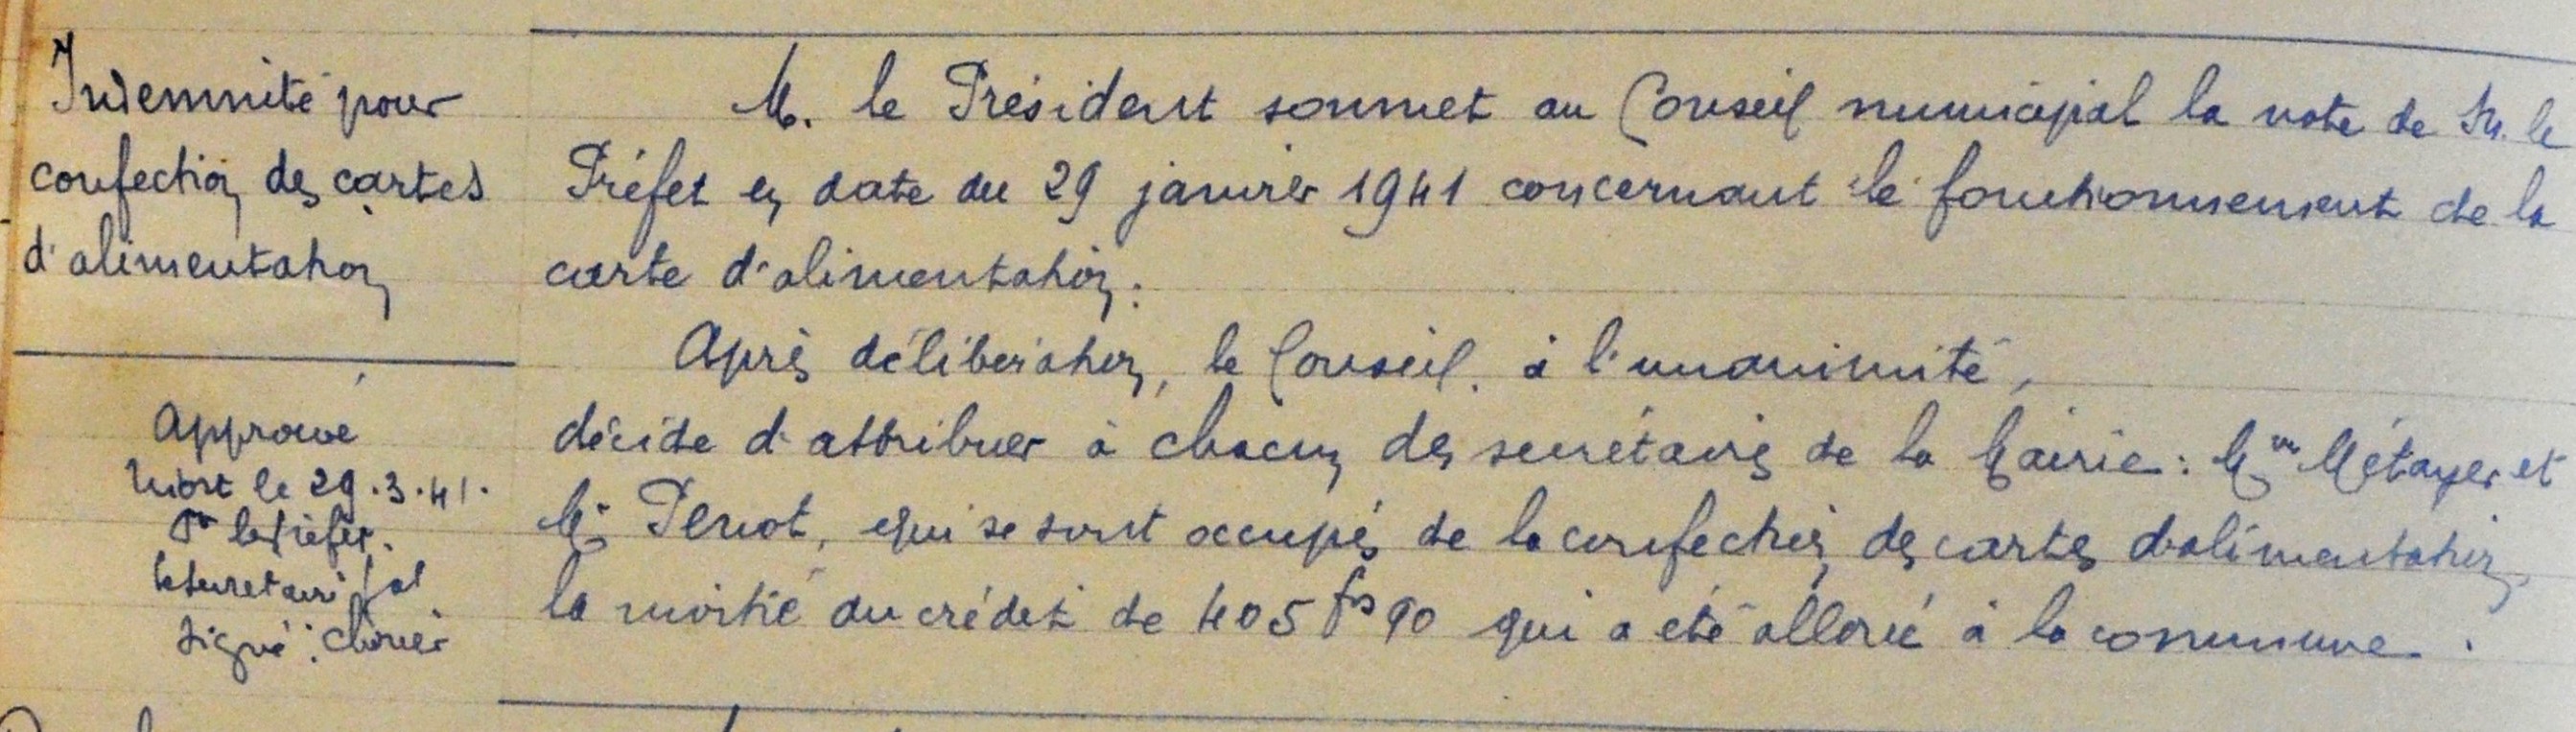 Indemnité pour
confection des cartes
d'alimentation
Approuvé
Niort le 29.3.41.
Pr le Préfet.
le Secrétaire Gal
Signé :
M. le Président soumet au Conseil municipal la note de M. le
Préfet en date du 29 janvier 1941 concernant le fonctionnement de la
carte d'alimentation.
Après délibération, le Conseil, à l'unanimité,
décide d'attribuer à chacun des secrétaires de la Mairie : Mme Métayer et
Mr Penot, qui se sont occupés de la confection des cartes d'alimentation,
la moitié du crédit de 405 frs 90 qui a été alloué à la commune.